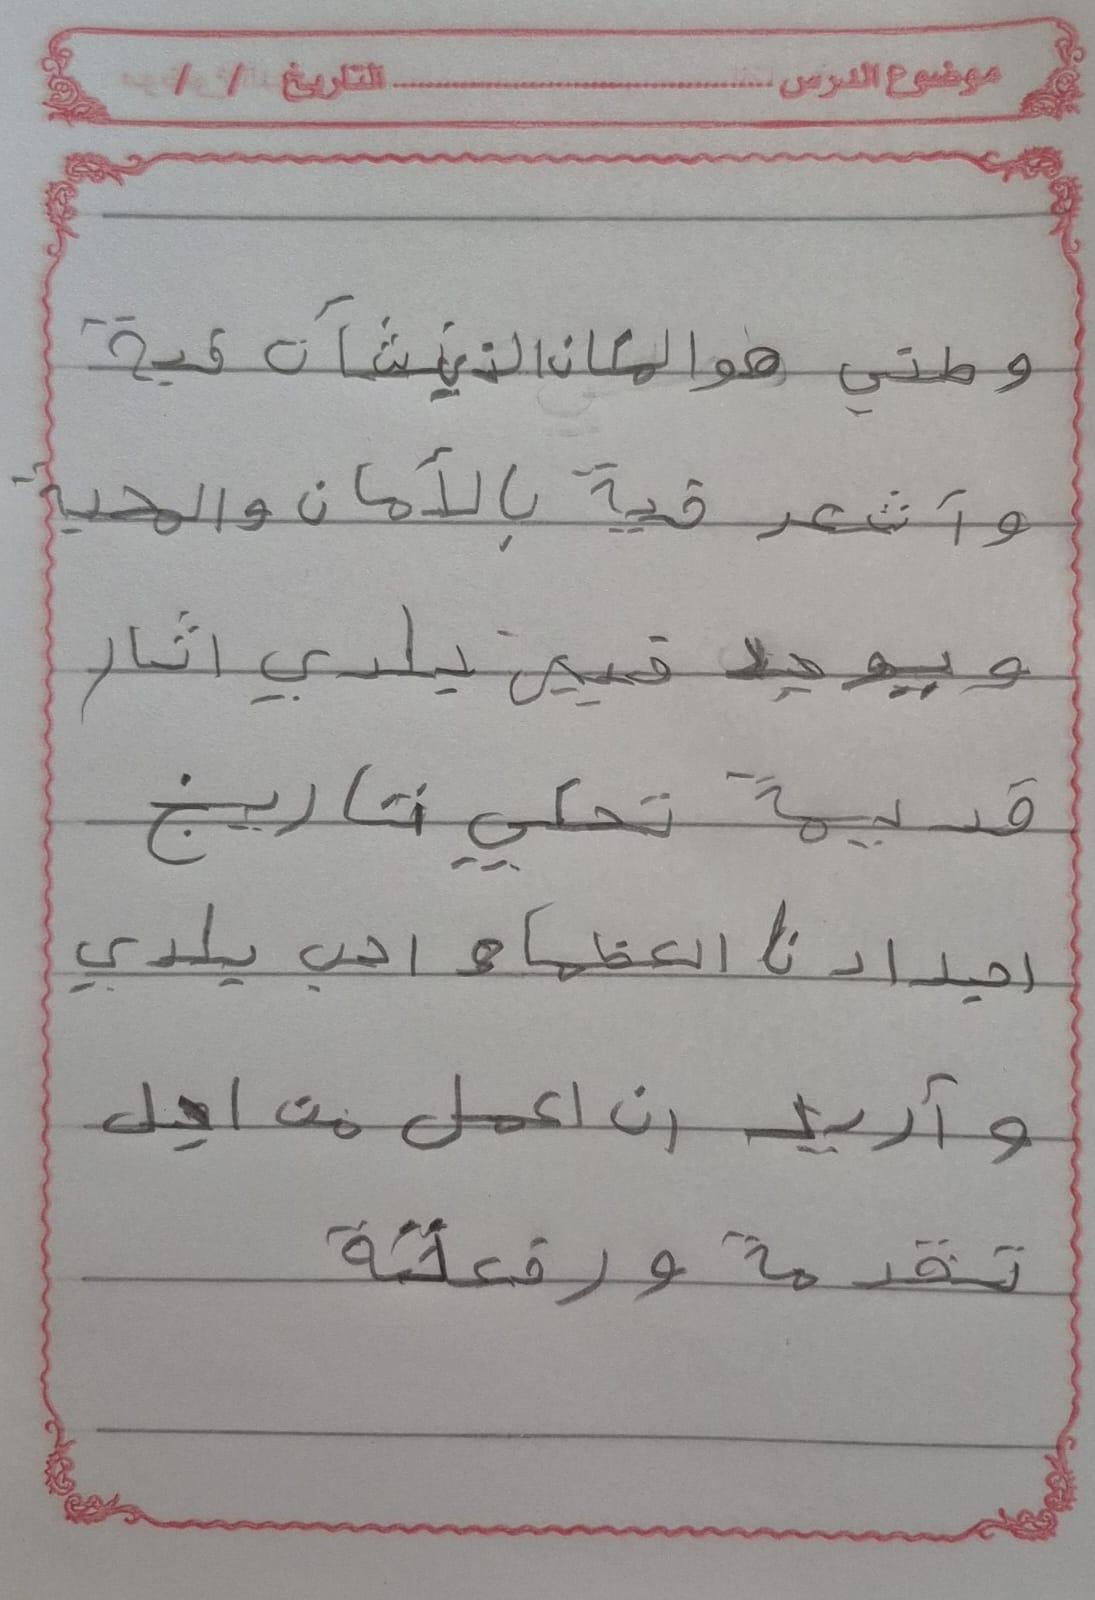 موضوع الدرس ........................ التاريخ / /
وطني هو المكان الذي نشآت فية
وآشعر فية بالأمان والمحبة
و يوجد في بلدي اثار
قديمة تحكي تاريخ
اجدادنا العظماء احب بلدي
وآريد ان اعمل من اجل
تقدمة ورفعتة